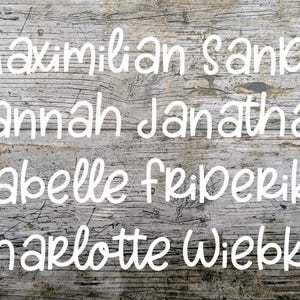 aximilian Sand
annah Janatha
abelle fRiDeRik
haRlotte Wiebk